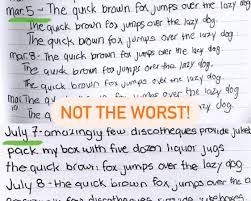 Mar. 5 - The quick brown fox jumps over the lazy dog.
The quick brown fox jumps over the lazy dog.
The quick brown fox jumps over the lazy dog.
Mar. 8 - The quick brown fox jumps over the lazy dog.
the quick brown fox jumps over the lazy dog.
the quick brown fox jumps over the lazy dog.
Mar. The lazy dog.
The
NOT THE WORST!
July 7 - amazingly few discotheques provide jukeb
pack my box with five dozen liquor jugs
the quick brown fox jumps over the lazy dog.
July 8 - the quick brown fox jumps over the